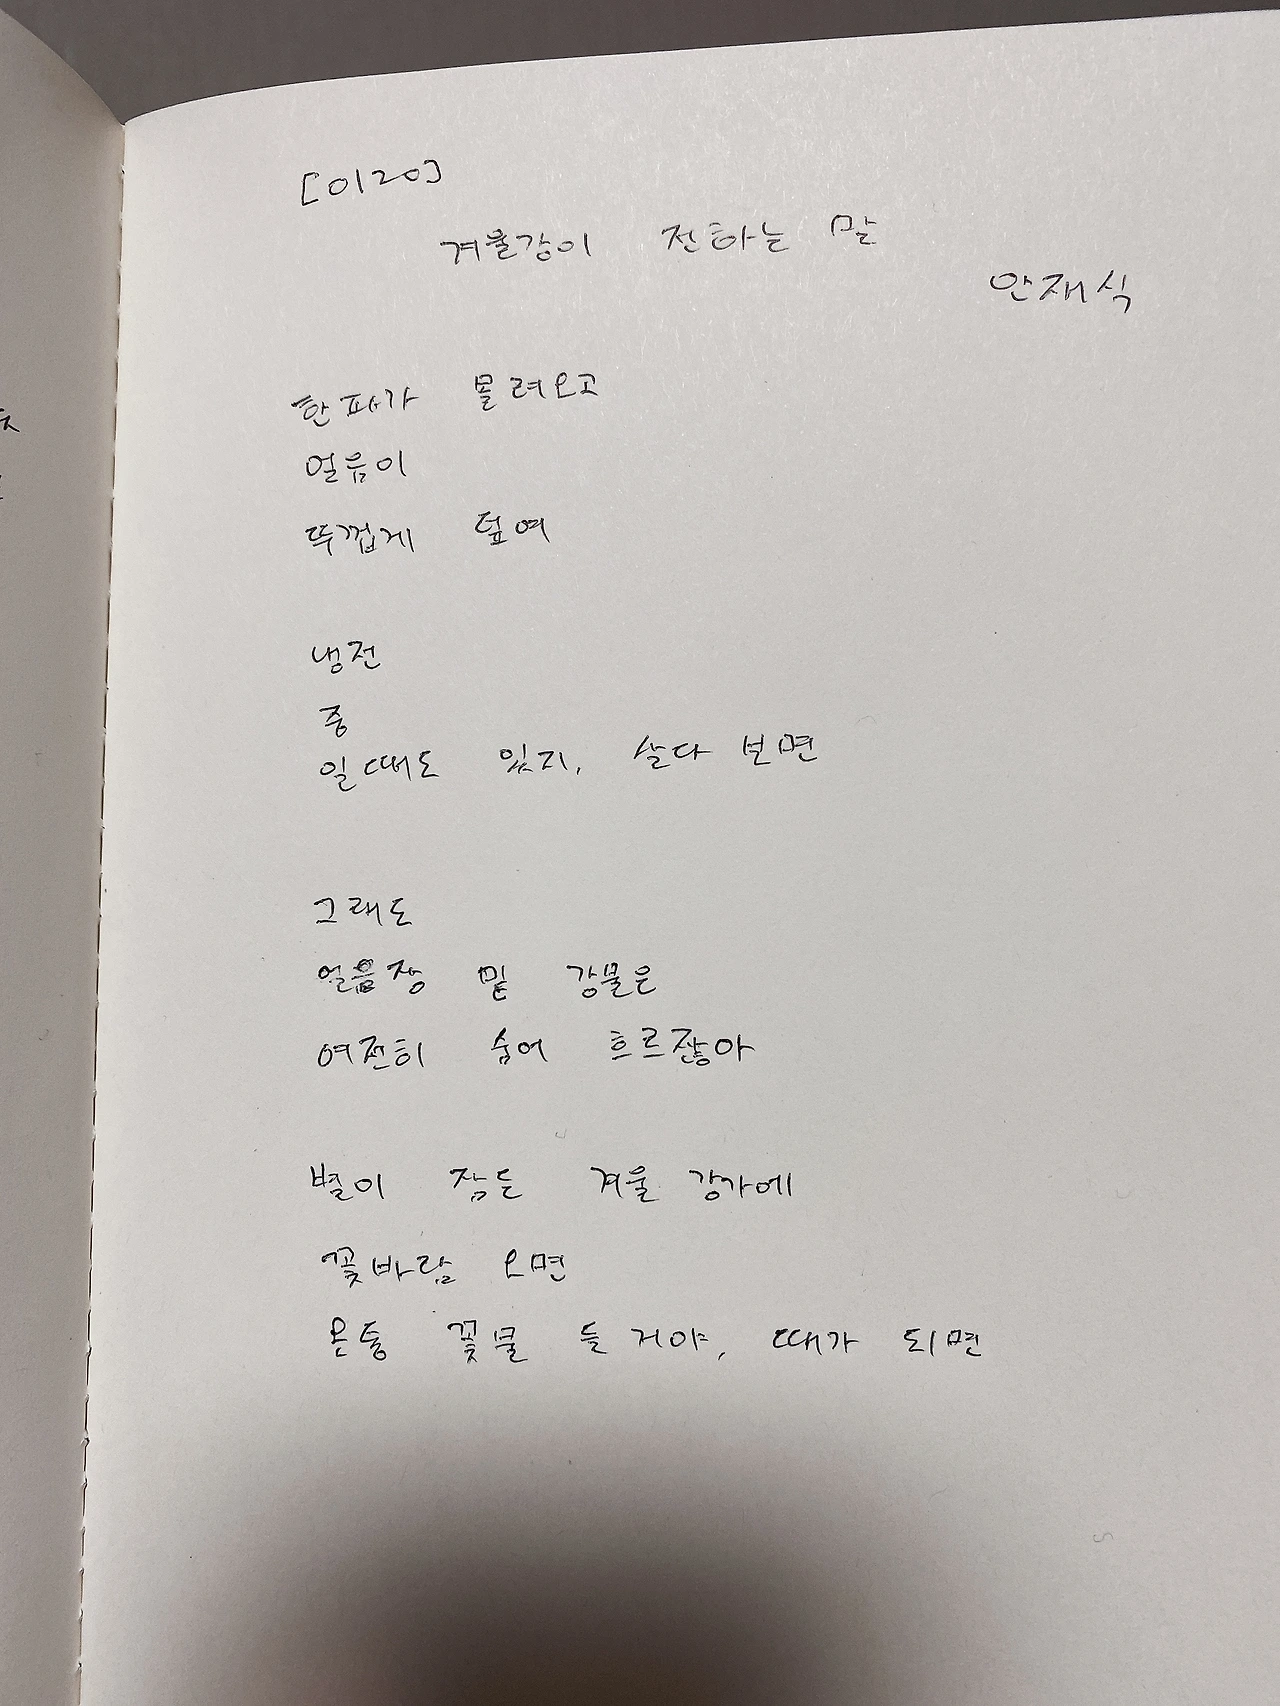 [0120]
겨울강이 전하는 말
안재식
한파가 몰려오고
얼음이
뚜껍게 덮여
냉전
중
일때도 있지, 살다 보면
그래도
얼음장 밑 강물은
여전히 숨어 흐르잖아
별이 잠든 겨울 강가에
꽃바람 오면
온통 꽃물 들거야, 때가 되면